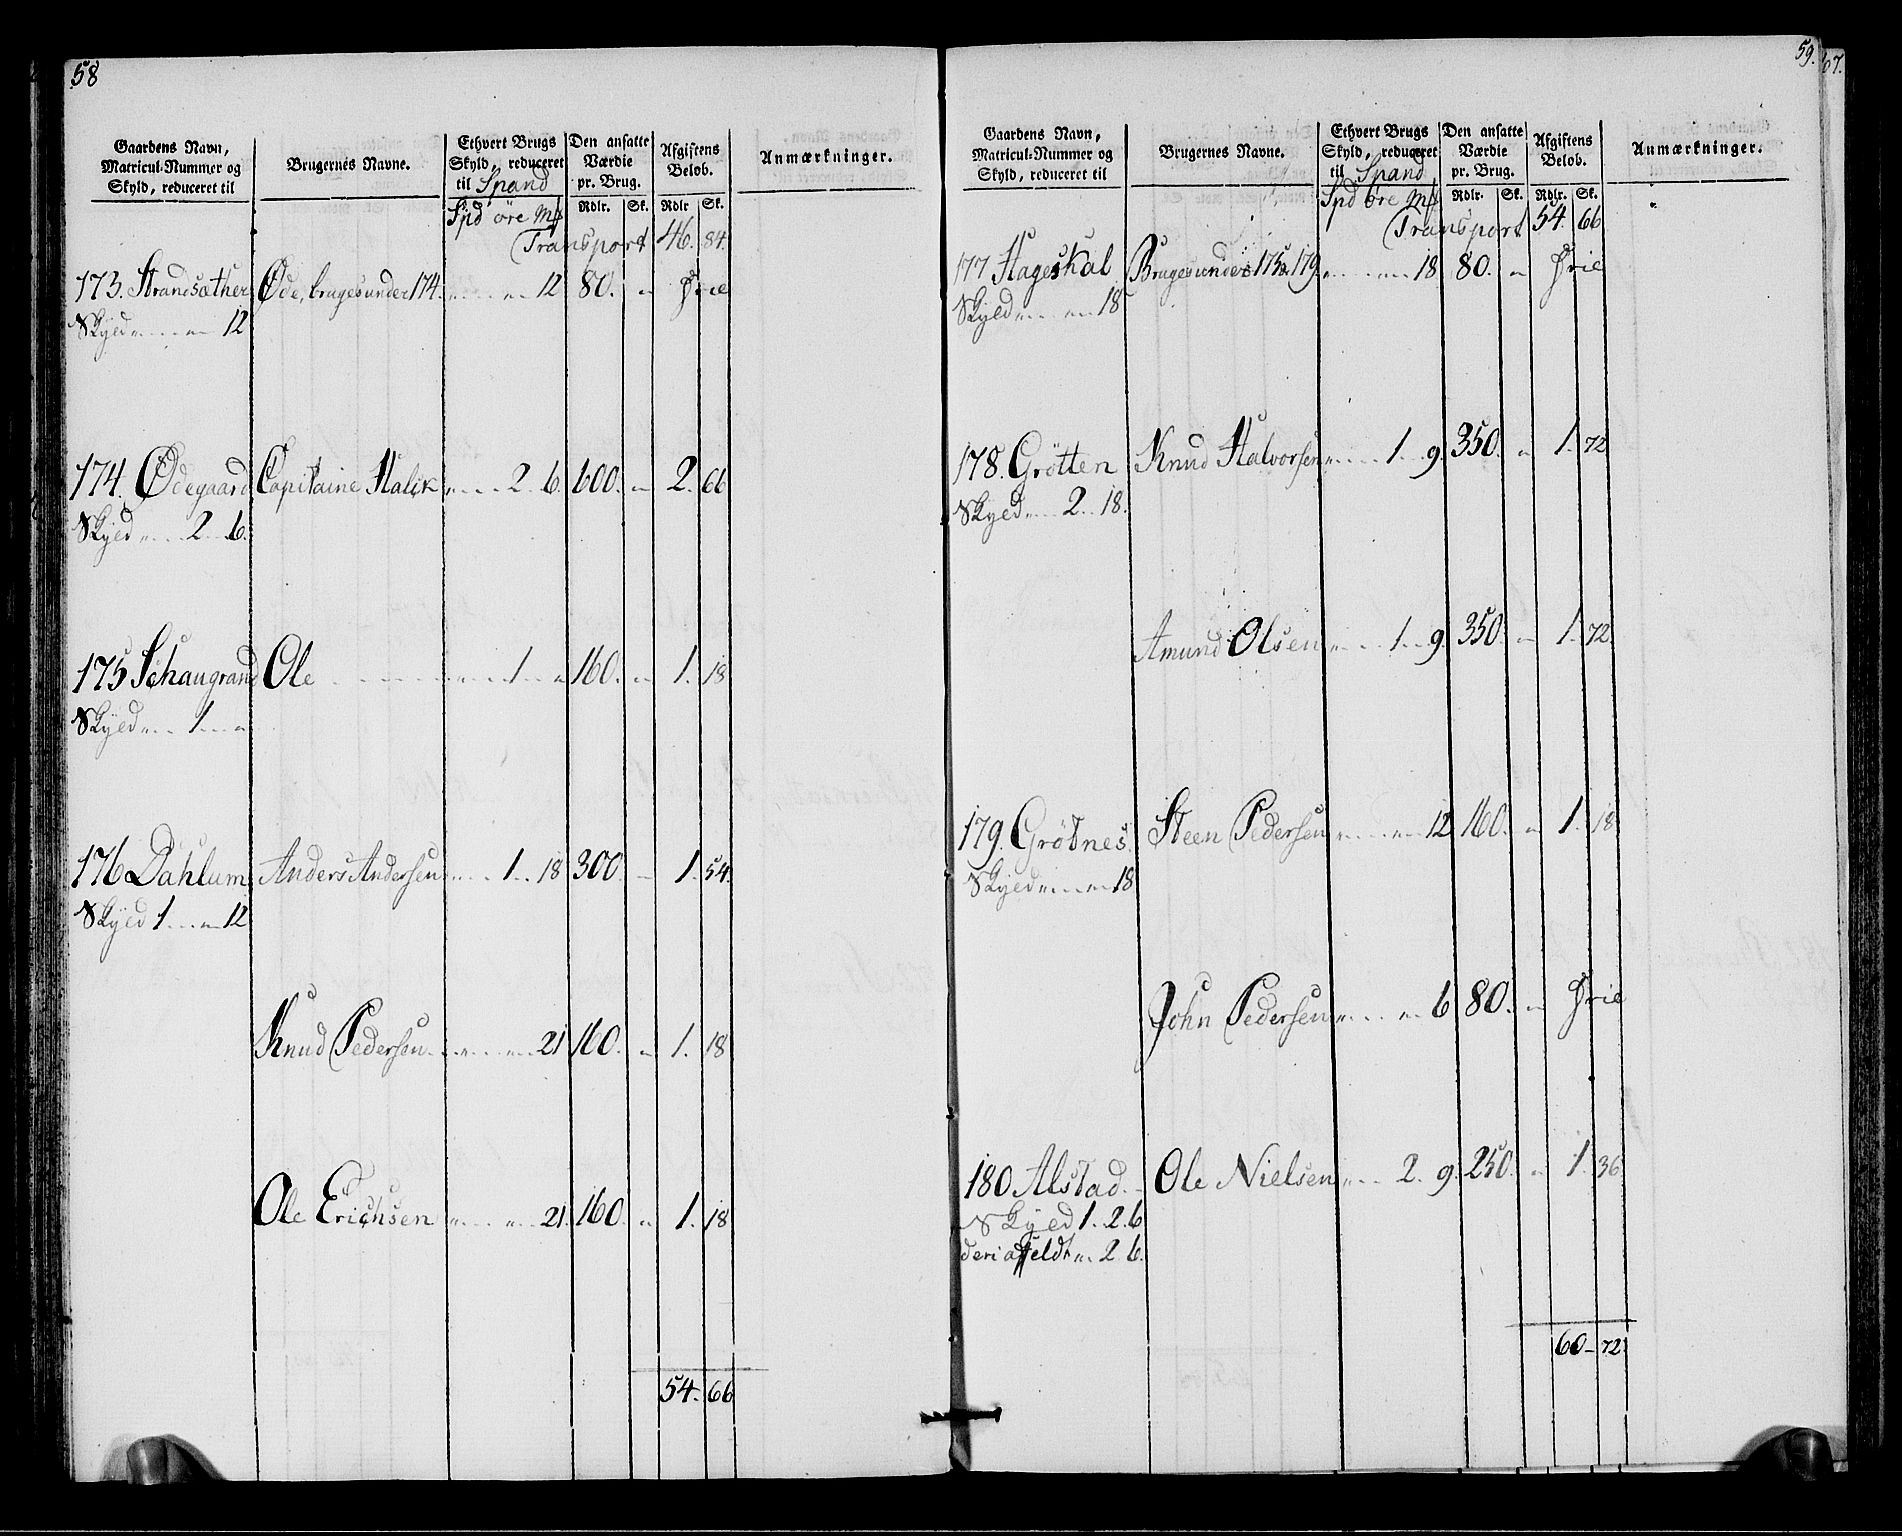 58
Gaardens Navn, Matricul-Nummer og Skyld, reduceret til
Brugernes Navne.
Ethvert Brugs Skyld, reduceret til Spand
Den ansatte Værdie pr. Brug.
Afgiftens Beløb.
Anmærkninger.
Spd øre Mk Rdlr. Sk. Rdlr Sk.
Transport 46. 84.
173. Strandsæther Øde, bruges under 174. 12 80. „ Frie
Skyld 12
174. Ødegaard Capitaine Halck 2. 6. 600. „ 2. 66
Skyld 2 6.
175 Schaugrand Ole 1 „ 160. „ 1. 18
Skyld 1 „
176 Dahlum Anders Andersen 1 18 300. „ 1. 54.
Skyld 1 „ 12
Knud Pedersen 21 160. „ 1. 18
Ole Erichsen 21. 160. „ 1. 18
54. 66
59.
67.
Gaardens Navn, Matricul-Nummer og Skyld, reduceret til
Brugernes Navne.
Ethvert Brugs Skyld, reduceret til Spand
Den ansatte Værdie pr. Brug.
Afgiftens Beløb.
Anmærkninger.
Spd øre Mk Rdlr. Sk. Rdlr. Sk.
Transport 54. 66
177 Hageskal Bruges under 175 & 179 18 80. „ Frie
Skyld 18
178. Grötten Knud Halvorsen 1 9. 350. „ 1. 72
Skyld 2 18.
Amund Olsen 1 9. 350. „ 1. 72.
179. Grötnes. Steen Pedersen 12 160. „ 1. 18
Skyld 18
John Pedersen 6 80. „ Frie
180 Alstad. Ole Nielsen 2. 9. 250. „ 1. 36
Skyld 1. 2. 6
deri affeldt „ 2. 6.
60 72.